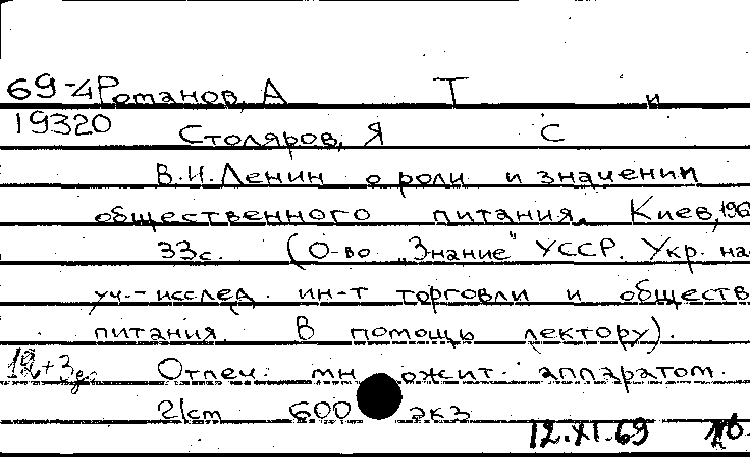 69-4 Ротанов, А Т и
19320 Столяров, Я С
В.И.Ленин о роли и значении
общественного питания. Киев, 196
33с. (О-во „Знание" УССР. Укр. на
уч.-исслед. ин-т торговли и обществ
питания. В помощь лектору).
12+3д. Отпеч. мн ожит. аппаратом.
21см 600 экз
12.XI.69